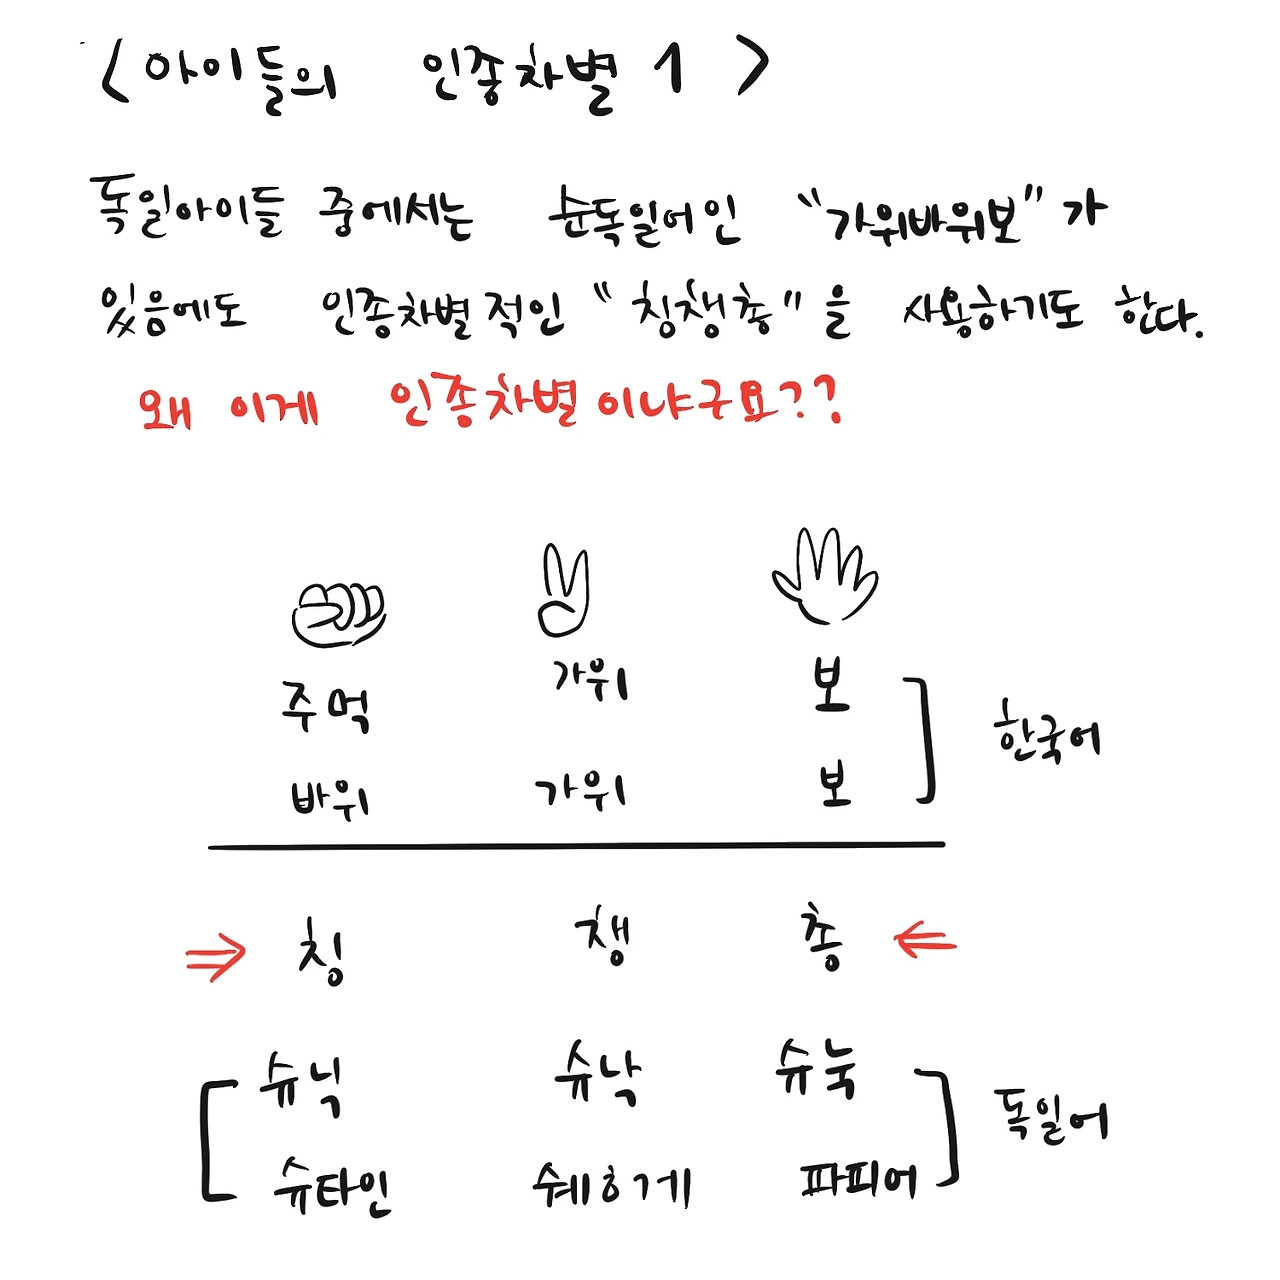 <아이들의 인종차별 1>
독일아이들 중에서는 순독일어인 "가위바위보"가
있음에도 인종차별적인 "칭챙총"을 사용하기도 한다.
왜 이게 인종차별이냐구요??
주먹 가위 보
한국어
바위 가위 보
⇒ 칭 챙 총 ⇐
슈닉 슈낙 슈눅
독일어
슈타인 쉐ㅎ게 파피어